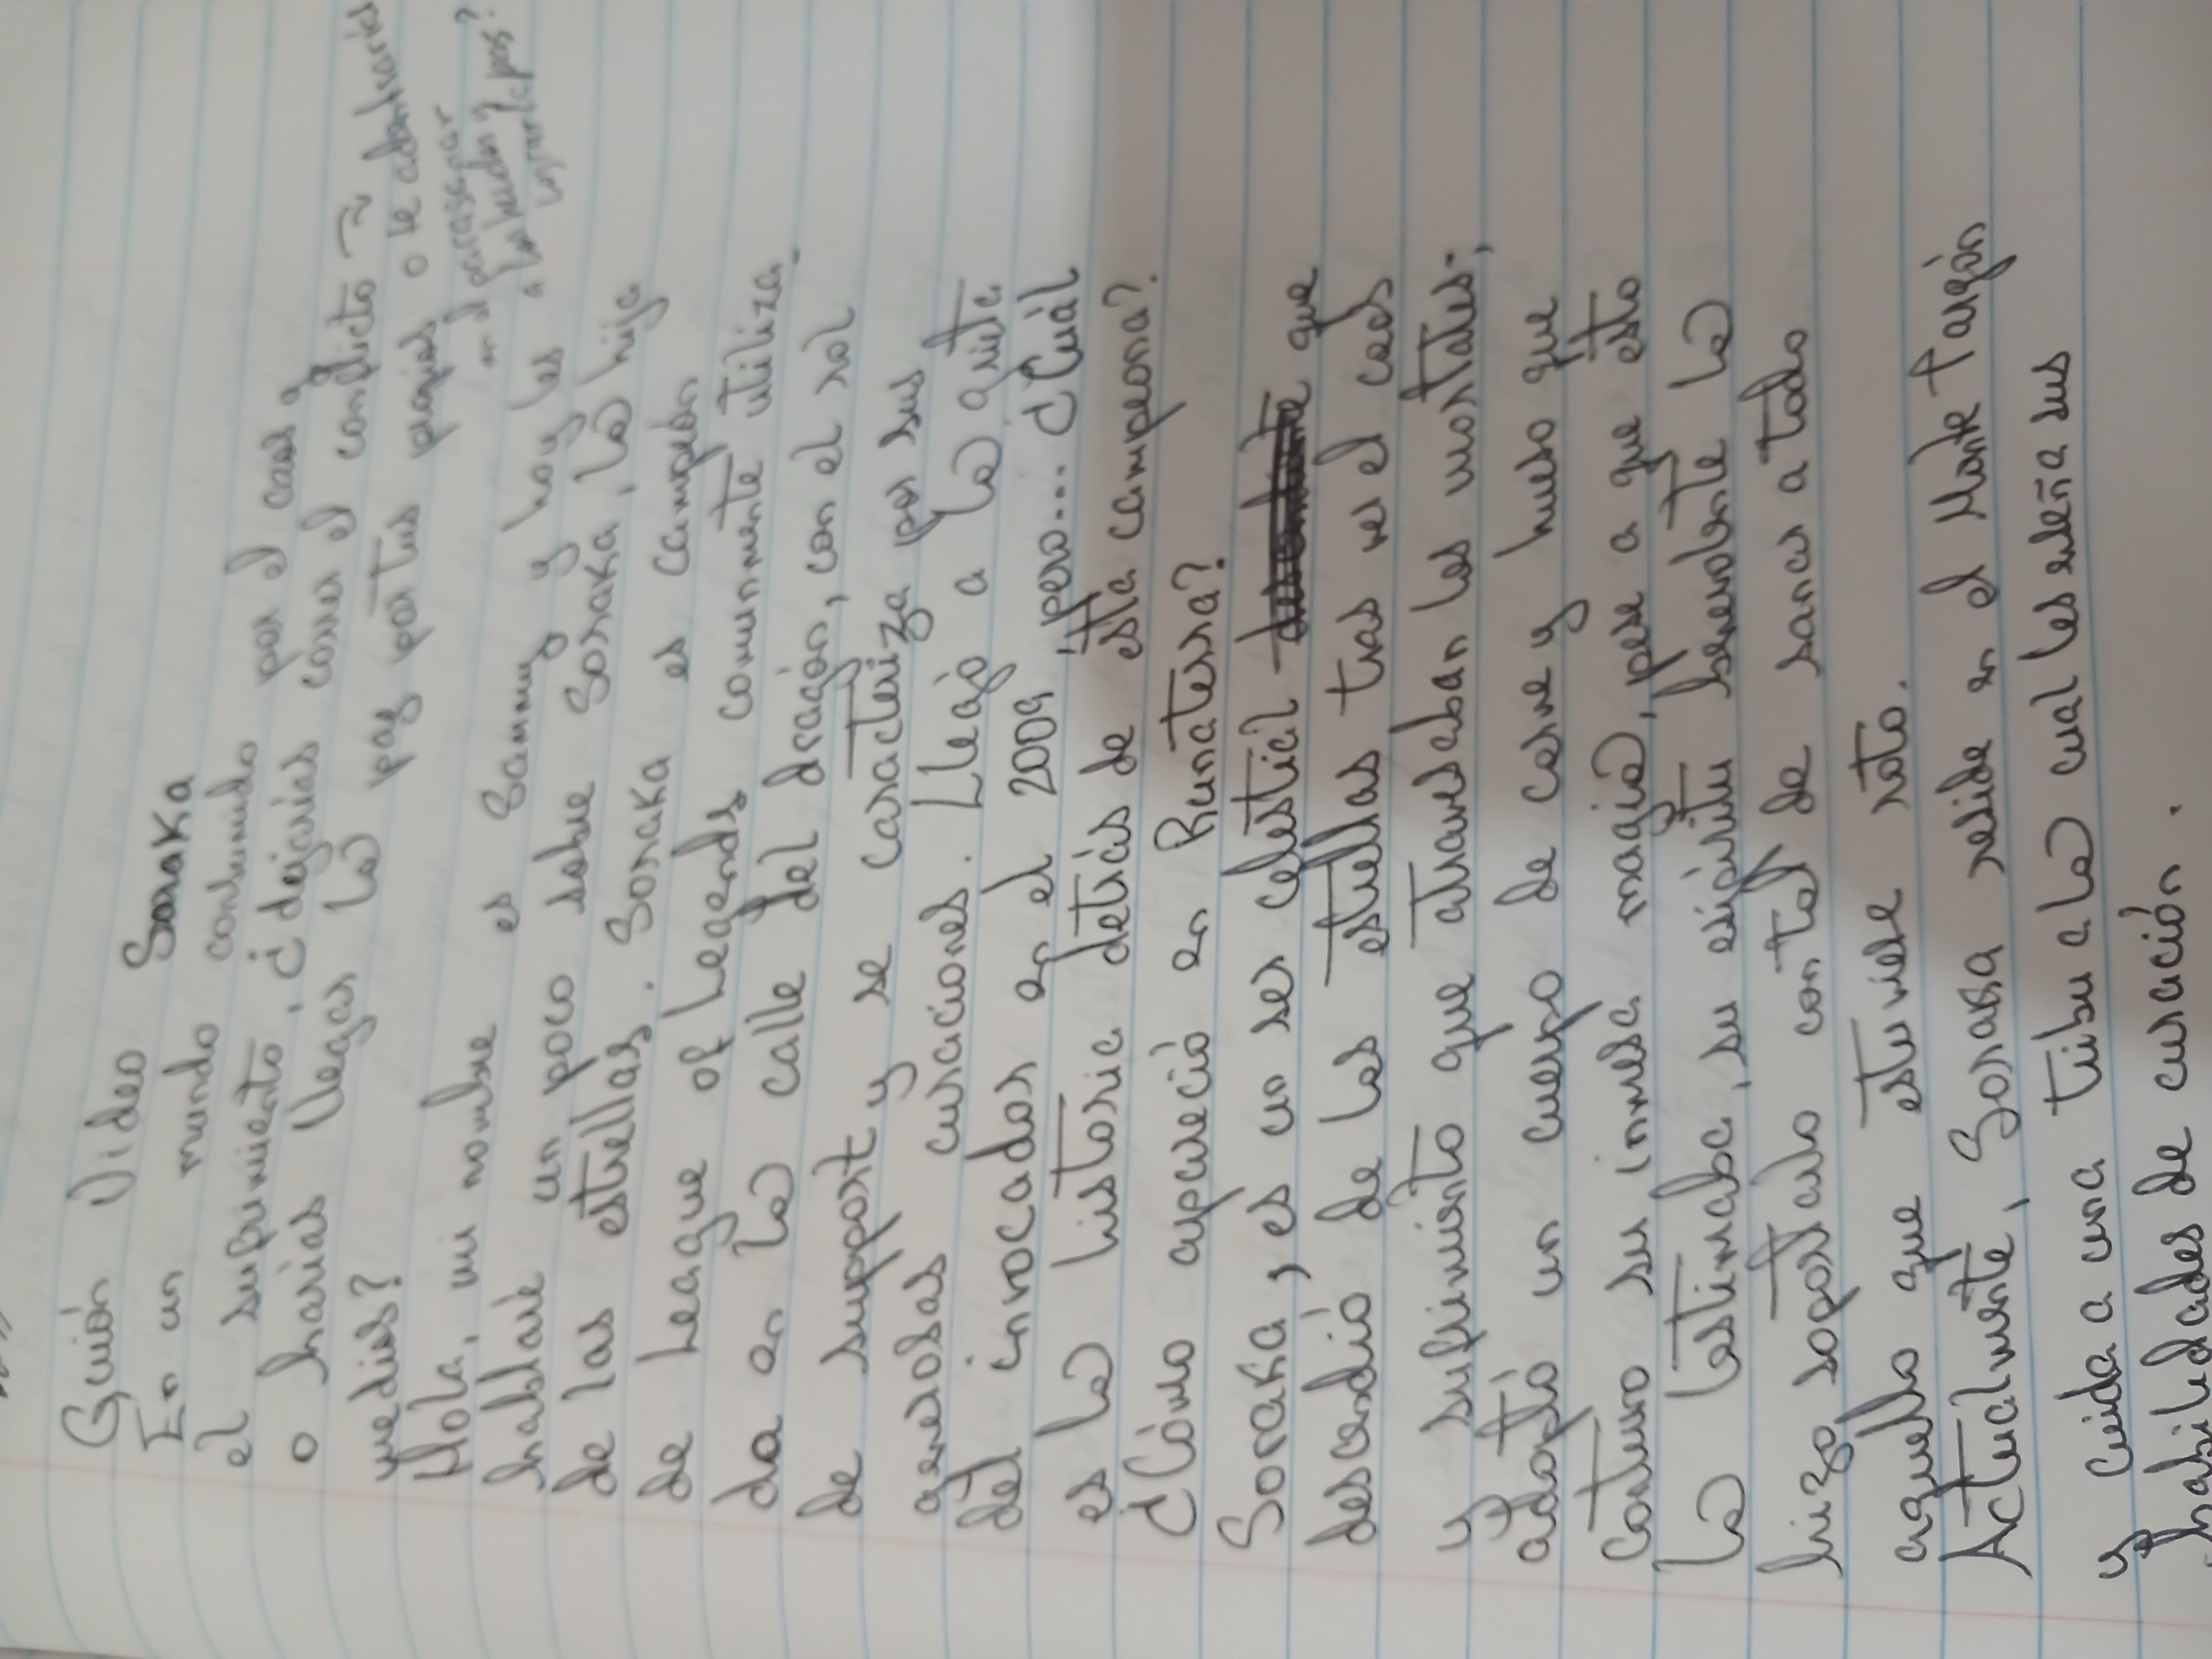 Guión Video Soraka
En un mundo consumido por el caos y
el sufrimiento, ¿dejarías correr el conflicto
o harías llegar la paz por tus propios
medios?
o te adentrarías
en el para sanar
a los heridos y
lograr la paz?
Hola, mi nombre es Sammy y hoy les
hablaré un poco sobre Soraka, la hija
de las estrellas. Soraka es campeón
de League of Legends comunmente utiliza-
da en la calle del dragón, con el rol
de support y se caracteriza por sus
generosas curaciones. Llegó a la grieta
del invocador en el 2009, pero... ¿Cuál
es la historia detrás de esta campeona?
¿Cómo apareció en Runaterra?
Soraka, es un ser celestial que
descendió de las estrellas tras ver el caos
y sufrimiento que atravesaban los mortales;
adoptó un cuerpo de carne y hueso que
contuvo su inmensa magia, pese a que esto
la lastimaba, su espíritu benevolente la
hizo soportarlo con tal de sanar a todo
aquello que estuviese roto.
Actualmente, Soraka reside en el Monte Targón
y cuida a una tribu a la cual les enseña sus
habilidades de curación.